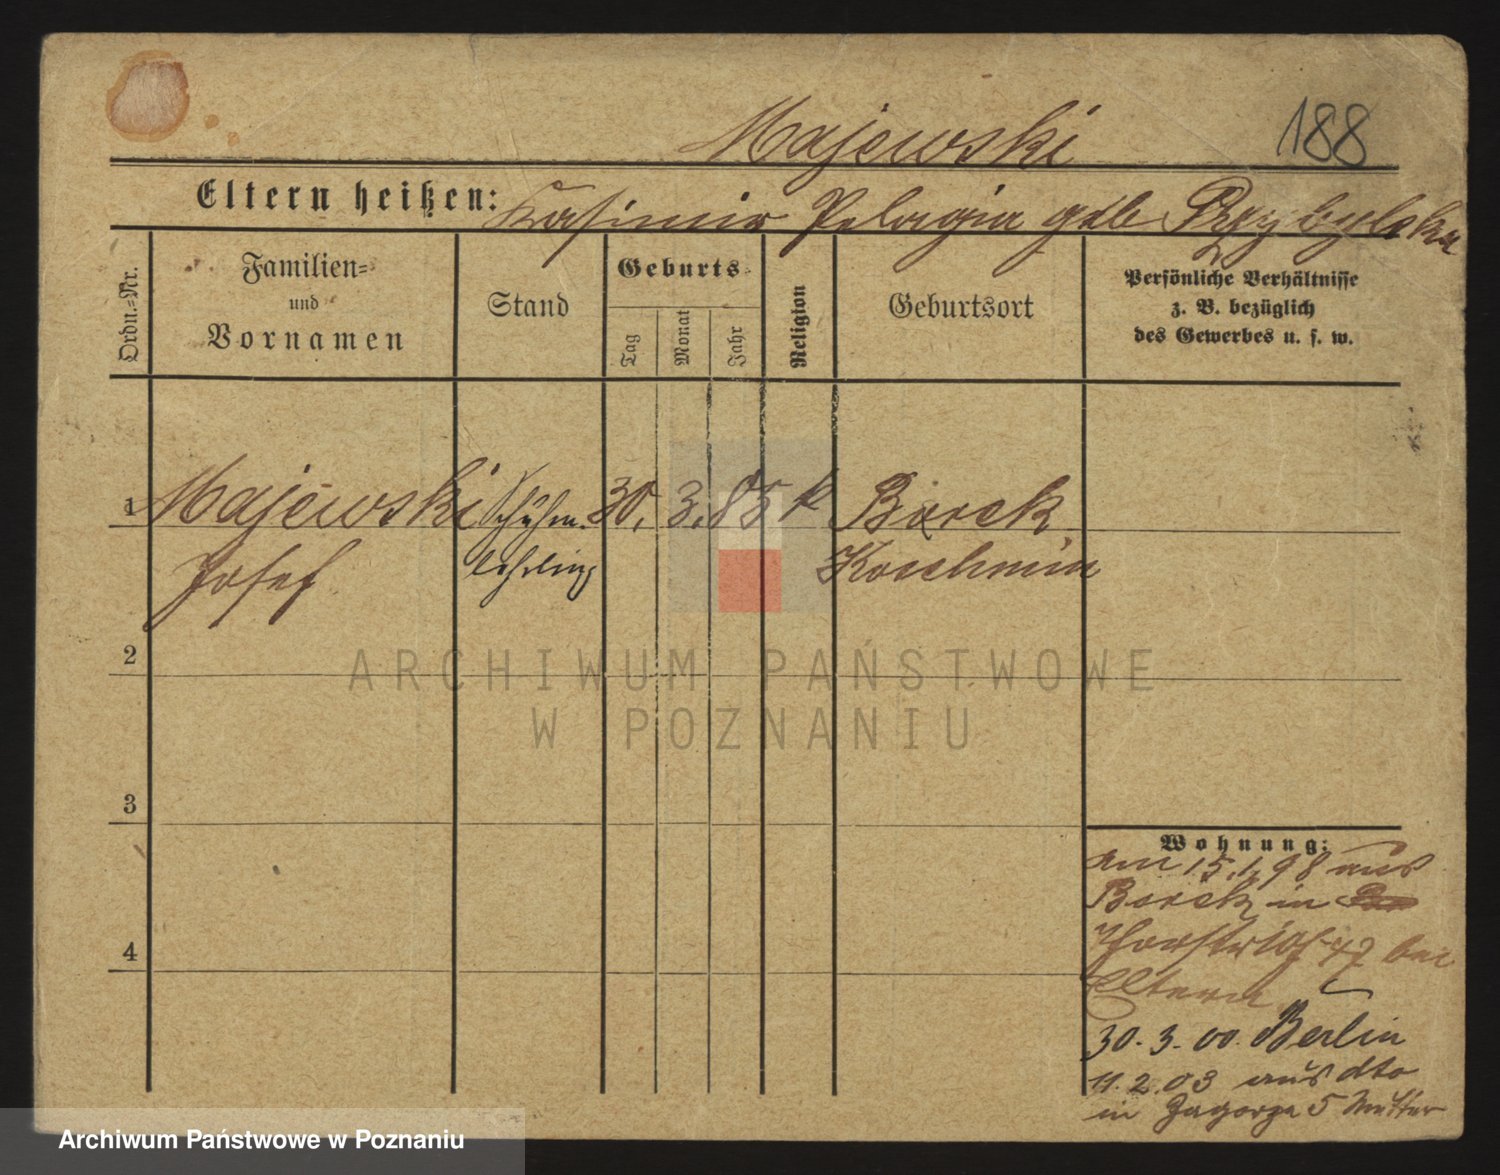 Majewski 188
Eltern heißen: Kasimir Pelagia geb Przybylska
Ordn.-Nr.
Familien-
und
Vornamen
Stand
Geburts-
Tag
Monat
Jahr
Religion
Geburtsort
Persönliche Verhältnisse
z. B. bezüglich
des Gewerbes u. s. w.
1 Majewski Schuhm. 30. 3. 85 k Borek
Josef lehrling Koschmin
2
3
4
Wohnung:
am 15.1.98 aus
Borek in
47 bei
Eltern
30.3.00. Berlin
11.2.03 aus dto
in Zagorze 5 Mutter
ARCHIWUM PAŃSTWOWE
W POZNANIU
Archiwum Państwowe w Poznaniu